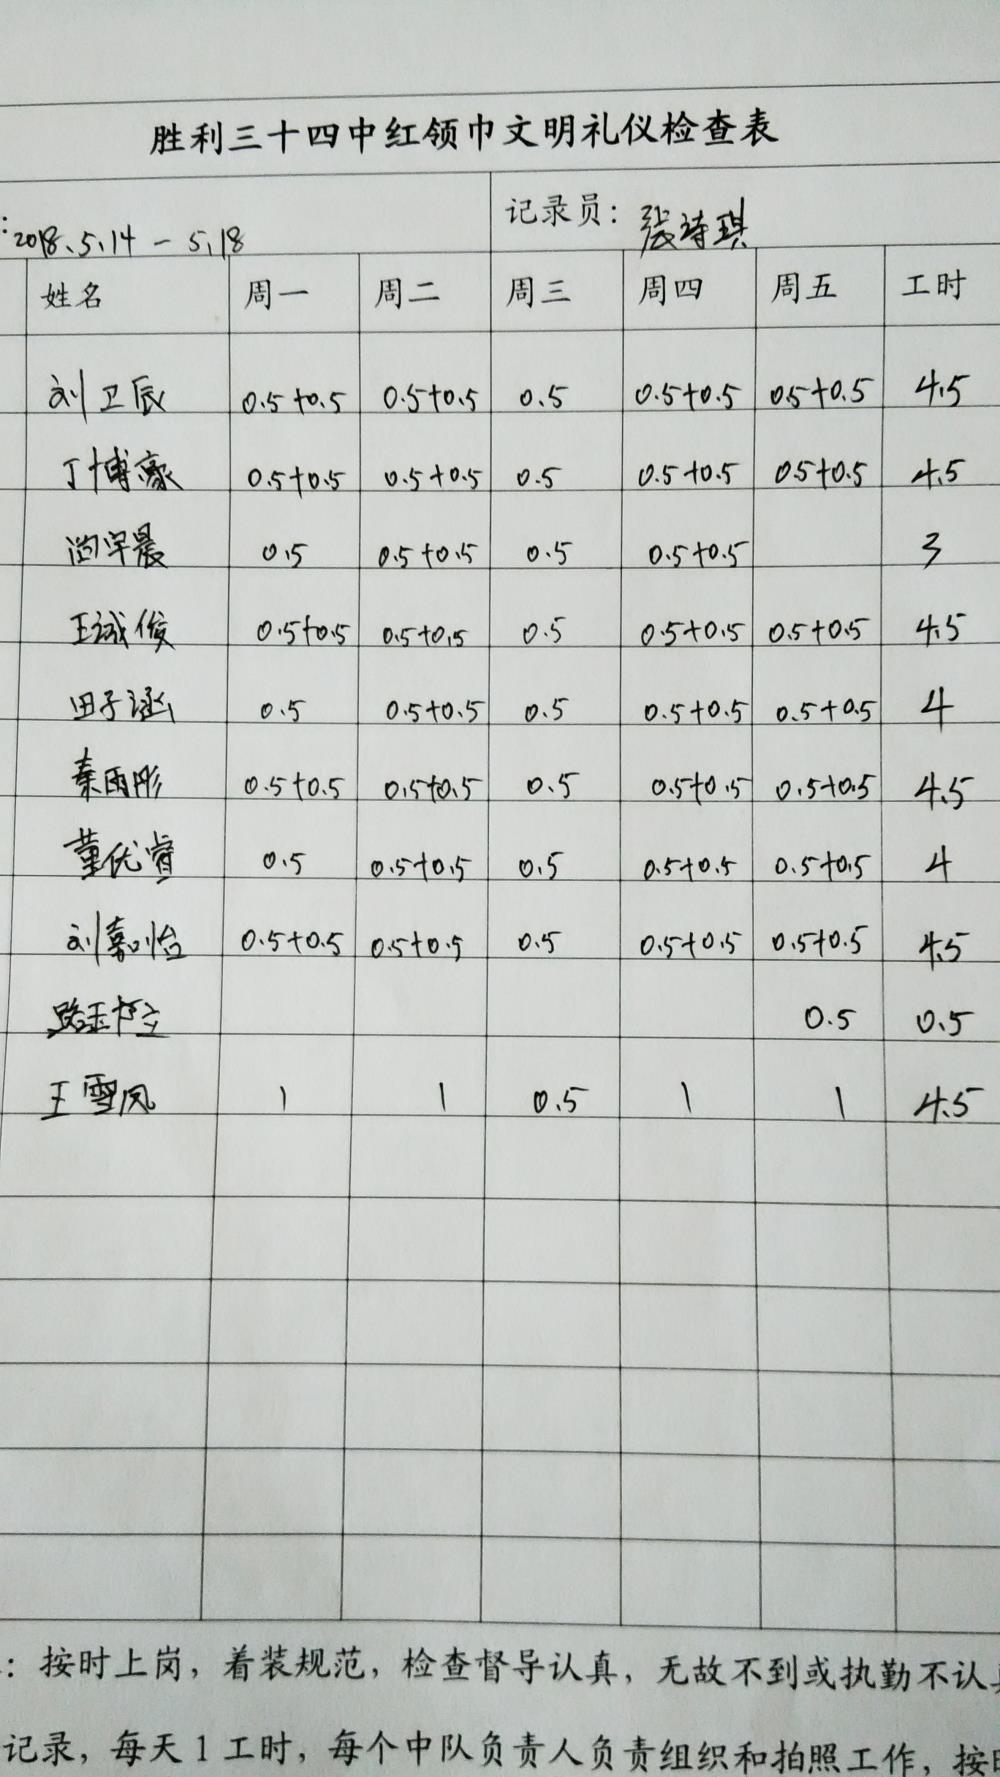 胜利三十四中红领巾文明礼仪检查表
: 2018.5.14 — 5.18 记录员: 张诗琪
姓名 周一 周二 周三 周四 周五 工时
刘卫辰 0.5+0.5 0.5+0.5 0.5 0.5+0.5 0.5+0.5 4.5
丁博豪 0.5+0.5 0.5+0.5 0.5 0.5+0.5 0.5+0.5 4.5
宇晨 0.5 0.5+0.5 0.5 0.5+0.5 3
王诚俊 0.5+0.5 0.5+0.5 0.5 0.5+0.5 0.5+0.5 4.5
田子涵 0.5 0.5+0.5 0.5 0.5+0.5 0.5+0.5 4
秦雨彤 0.5+0.5 0.5+0.5 0.5 0.5+0.5 0.5+0.5 4.5
董优睿 0.5 0.5+0.5 0.5 0.5+0.5 0.5+0.5 4
刘嘉怡 0.5+0.5 0.5+0.5 0.5 0.5+0.5 0.5+0.5 4.5
路玉 0.5 0.5
王雪凤 1 1 0.5 1 1 4.5
: 按时上岗，着装规范，检查督导认真，无故不到或执勤不认
记录，每天1工时，每个中队负责人负责组织和拍照工作，按